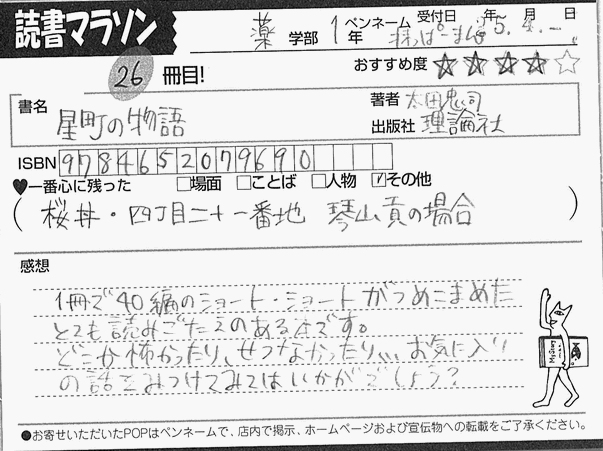 読書マラソン
薬 学部 1年 ペンネーム 受付日 5年 4月 日
26 冊目!
おすすめ度 ★★★★☆
書名 星町の物語
著者 太田忠司
出版社 理論社
ISBN 9784652079690
♥一番心に残った □場面 □ことば □人物 ☑その他
(桜丼・四丁目二十一番地 琴山貢の場合)
感想
1冊で40編のショート・ショートがつめこまめた
とても読みごたえのある本です。
どこか怖かったり、せつなかったり、、、お気に入り
の話をみつけてみてはいかがでしょう?
●お寄せいただいたPOPはペンネームで、店内で掲示、ホームページおよび宣伝物への転載をご了承ください。